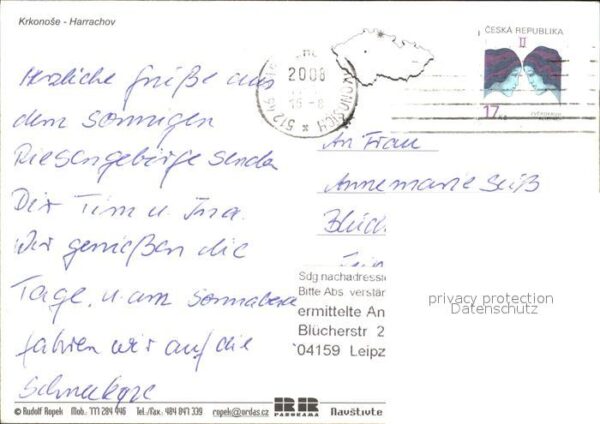 Krkonoše - Harrachov
Herzliche Grüße aus
dem sonnigen
Riesengebirge senden
Dir Tim u. Ina.
Wir genießen die
Tage, u. am Sonnabend
fahren wir auf die
Schneekope
2008
512 46
ČESKÁ REPUBLIKA
II
17 Kč
An Frau
Annemarie Seiß
Blüch
Sdg nachadressie
Bitte Abs. verstän
ermittelte An
Blücherstr 2
04159 Leipz
privacy protection
Datenschutz
© Rudolf Ropek Mob.: 777 284 946 Tel./Fax.: 484 847 339 ropek@ordas.cz PANORAMA Navštivte